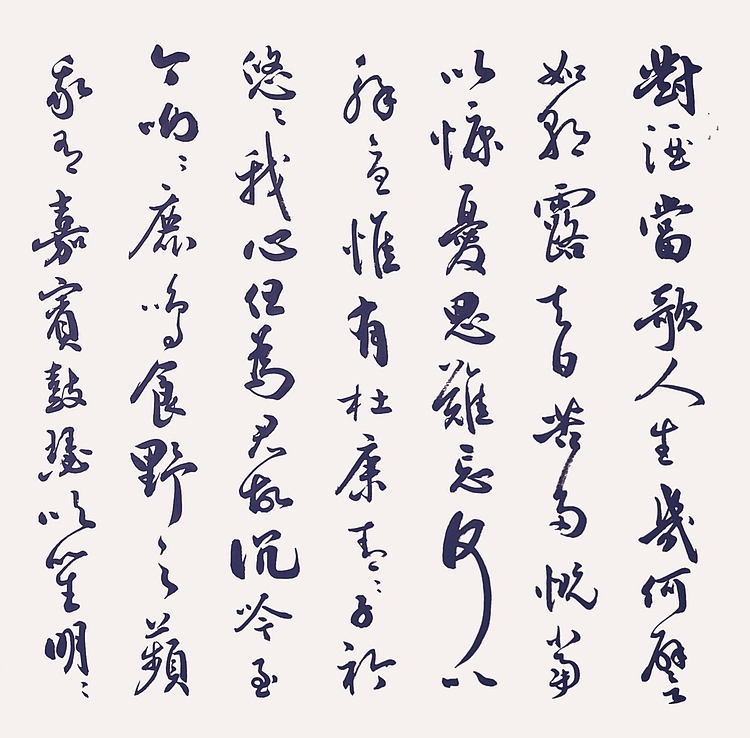 對酒當歌人生幾何譬
如朝露去日苦多慨當
以慷憂思難忘何以
解憂惟有杜康青〻子衿
悠〻我心但為君故沉吟至
今呦〻鹿鳴食野之蘋
我有嘉賓鼓瑟吹笙明〻